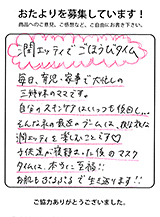 おたよりを募集しています！
商品へのご意見、ご感想など、ご自由にお書き下さい。
潤エッティでごほうびタイム
毎日、育児・家事で大忙しの
三姉妹のママです。
自分のスキンケアはいつも後回し…
そんな私の最近のブームは、夜な夜な
潤エッティを楽しむことです♡
子供達が寝静まった後のマスク
タイムは、本当に至福!!
お肌もぷるぷるで生き返ります!!
ご協力ありがとうございました。